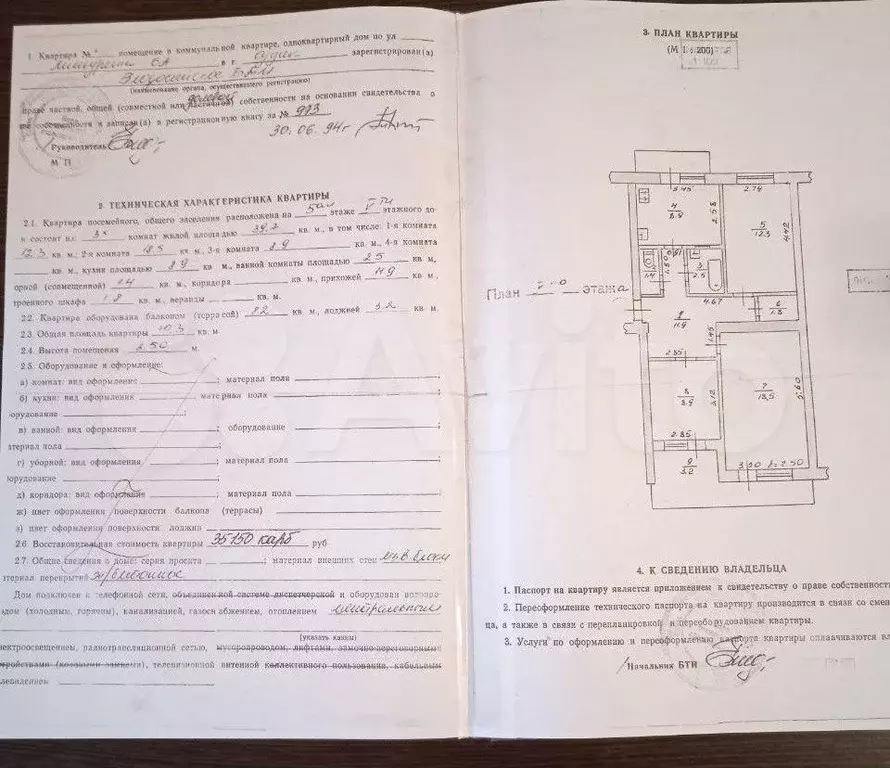 1. Квартира № помещение в коммунальной квартире, одноквартирный дом по ул
в г. Судак зарегистрирован(а)
Феодосийское БТИ
(наименование органа, осуществляемого регистрацию)
праве частной, общей (совместной или частичной) долевой собственности на основании свидетельства о
собственности и записан(а) в регистрационную книгу за № 993
30.06.94г
Руководитель
М П
2. ТЕХНИЧЕСКАЯ ХАРАКТЕРИСТИКА КВАРТИРЫ
2.1. Квартира посемейного, общего заселения расположена на 5ом этаже V ти этажного до
и состоит из: 3х комнат жилой площадью 39.7 кв. м., в том числе: 1-я комната
12.3 кв. м; 2-я комната 18.5 кв. м, 3-я комната 8.9 кв. м., 4-я комната
кв. м., кухни площадью 8.9 кв. м., ванной комнаты площадью 2.5 кв. м,
орной (совмещенной) 1.4 кв. м., коридора кв. м., прихожей 11.9 кв. м.,
троенного шкафа 1.8 кв. м., веранды кв. м.
2.2. Квартира оборудована балконом (террасой) кв. м., лоджией 3.2 кв. м.
2.3. Общая площадь квартиры кв. м.
2.4. Высота помещения 2.50 м.
2.5. Оборудование и оформление:
а) комнат: вид оформление ; материал пола
б) кухни: вид оформления ; материал пола
орудование
в) ванной: вид оформления ; оборудование
атериал пола
г) уборной: вид оформления ; материал пола
орудование
д) коридора: вид оформление ; материал пола
ж) цвет оформления поверхности балкона (террасы)
з) цвет оформления поверхности лоджии
2.6. Восстановительная стоимость квартиры 35150 карб руб
2.7. Общие сведения о доме: серия проекта ; материал внешних стен м/в. блоки
атериал перекрытий ж/бетонное
Дом подключен к телефонной сети, объединенной системе диспетчерской и оборудован водопро-
одом (холодным, горячим), канализацией, газоснабжением, отоплением центральное
(указать каким)
лектроосвещением, радиотрансляционной сетью, мусоропроводом, лифтами, замочно-переговорными
тройствами (кодовыми замками), телевизионной антенной коллективного пользования, кабельным
елевидением
3. ПЛАН КВАРТИРЫ
(М 1 : 200)
1:100
3.45
2.74
4
8.9
2.58
5
12.3
4.42
1.4
2.5
4.67
6
1.8
11.9
1.45
2.85
3.12
8.9
7
18.5
5.60
2.85
9
3.2
2.50
План этажа
4. К СВЕДЕНИЮ ВЛАДЕЛЬЦА
1. Паспорт на квартиру является приложением к свидетельству о праве собственнос
2. Переоформление технического паспорта на квартиру производится в связи со смен
ца, а также в связи с перепланировкой и переоборудованием квартиры.
3. Услуги по оформлению и переоформлению паспорта квартиры оплачиваются вл
Начальник БТИ
Avito